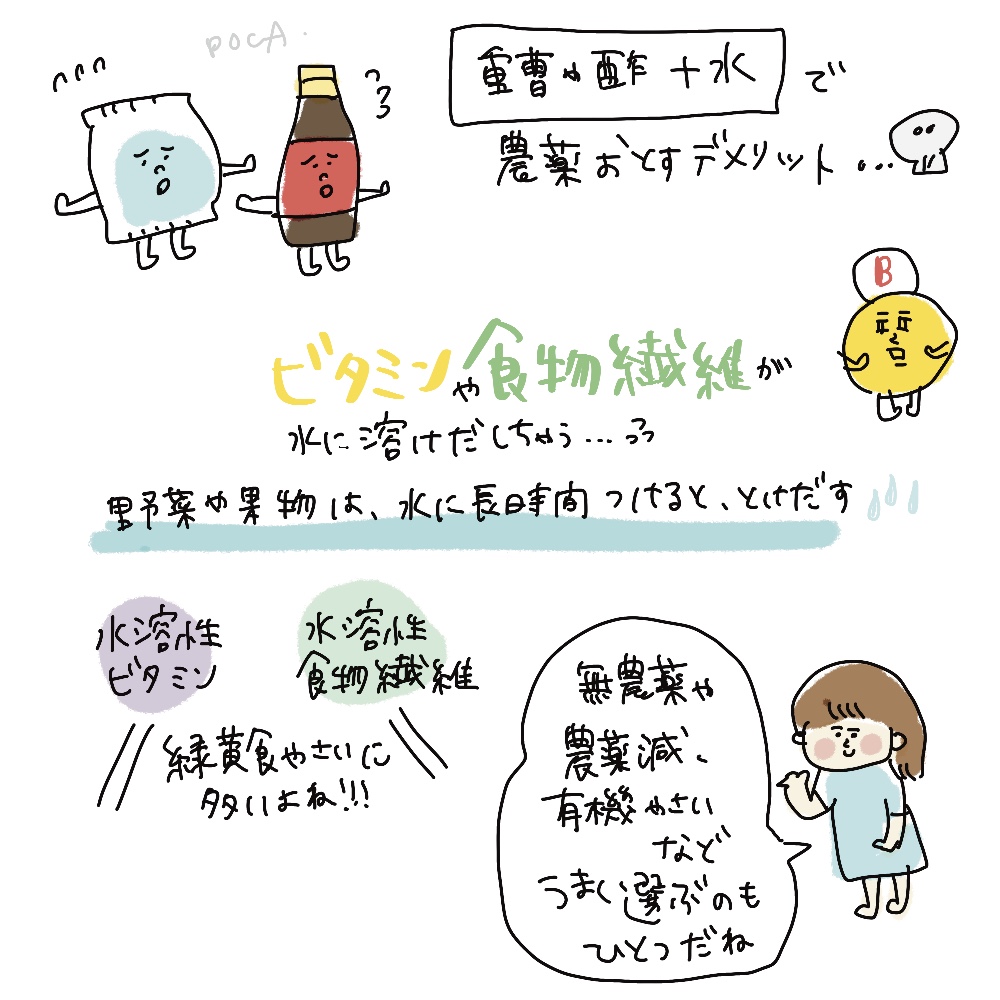 POCA.
重曹や酢+水で
農薬おとすデメリット...
B
ビタミンや食物繊維が
水に溶けだしちゃう...
野菜や果物は、水に長時間つけると、とけだす
水溶性
ビタミン
水溶性
食物繊維
緑黄食やさいに
多いよね!!!
無農薬や
農薬減、
有機やさい
など
うまく選ぶのも
ひとつだね